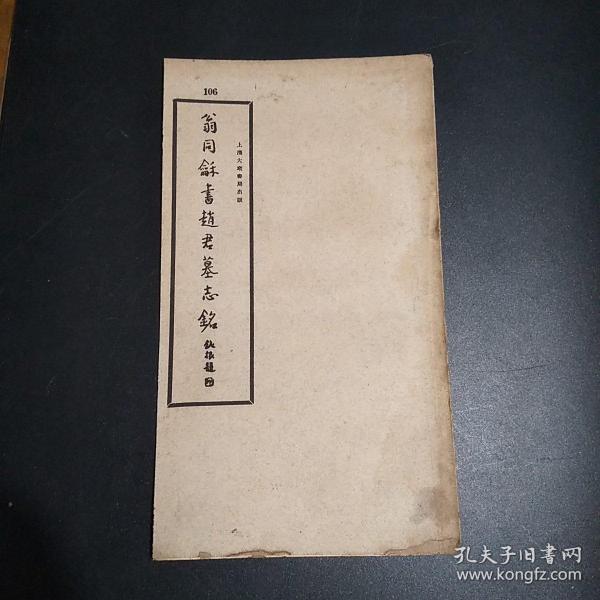 106
上海大眾書局出版
翁同龢書趙君墓志銘
孔夫子旧书网
www.kongfz.com